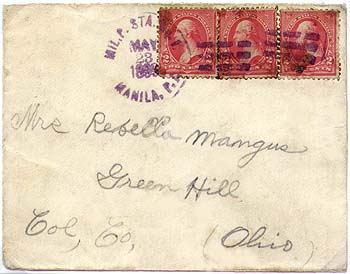 MIL. P. STA.
MAY
23
MANILA, P.I.
2 2
2 2
2 2
Mrs Rebella Mangus
Green Hill
Col, Co, (Ohio)